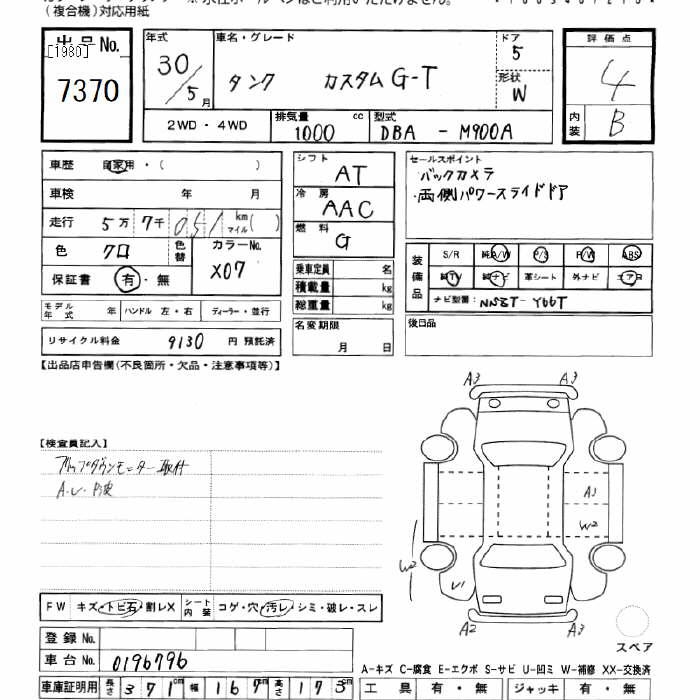 (複合機)対応用紙
出品No.
[1980]
7370
年式
30/5月
車名・グレード
タンク カスタムG-T
ドア
5
形状
W
評価点
4
内装
B
2WD・4WD
排気量
1000 cc
型式
DBA - M900A
車歴 自家用・( )
車検 年 月
走行 5万 7千 051 km マイル( )
色 クロ
色替
カラーNo.
X07
保証書 有・無
シフト
AT
冷房
AAC
燃料
G
乗車定員 名
積載量 kg
総重量 kg
セールスポイント
・バックカメラ
・両側パワースライドドア
装備品
S/R 純A/W P/S P/W ABS
純TV 純ナビ 革シート 外ナビ エアB
ナビ型番: NSZT-Y66T
モデル年式 年 ハンドル 左・右 ディーラー・並行
リサイクル料金 9130 円 預託済
名変期限
月 日
後日品
【出品店申告欄(不良箇所・欠品・注意事項等)】
A3 A3
【検査員記入】
A1
W2
W2
U1
A2 A3
FW キズ・トビ石・割レX シート内装 コゲ・穴・汚レ・シミ・破レ・スレ
登録No.
車台No. 0196796
スペア
A-キズ C-腐食 E-エクボ S-サビ U-凹ミ W-補修 XX-交換済
車庫証明用 長さ 371cm 幅 167cm 高さ 173cm
工具 有・無 ジャッキ 有・無